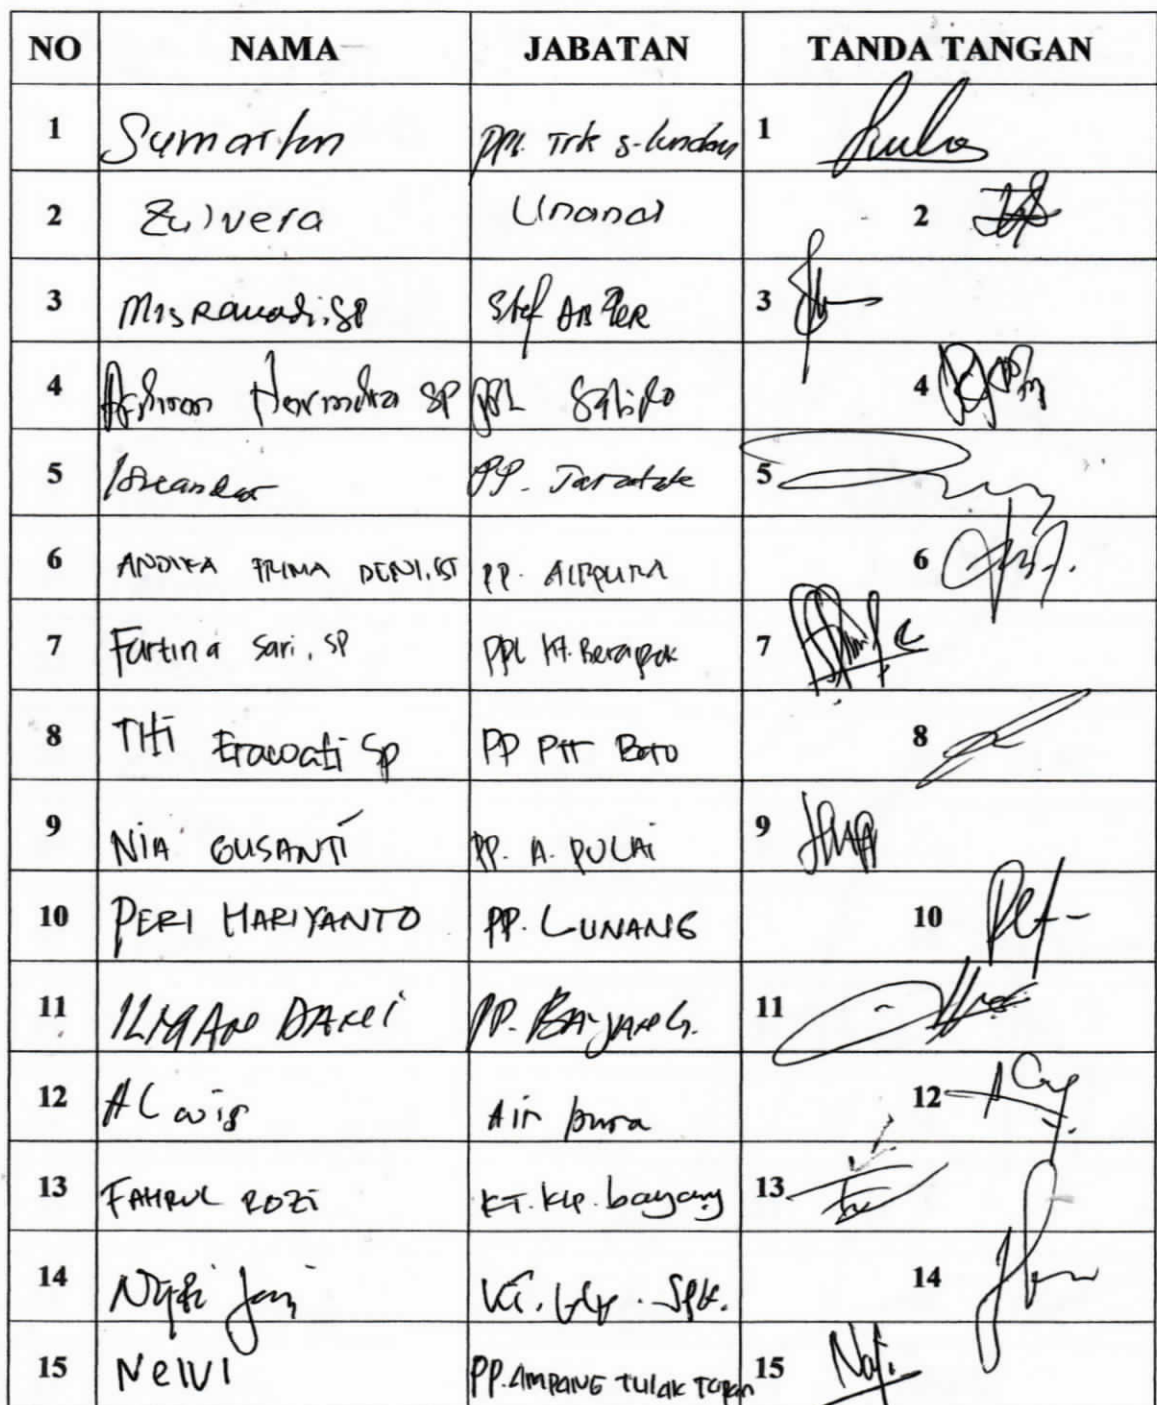 NO NAMA JABATAN TANDA TANGAN
1 Sumartin PPL Trk S-lundang 1
2 Zulvera Unand 2
3 Misrawadi, SP Staf 3
4 SP PPL Salido 4
5 Iskandar PP. Taratak 5
6 ANDIKA PRIMA DENI, SST PP. AIRPURA 6
7 Fartina Sari, SP PPL Kt. Berapak 7
8 Titi Erawati SP PP Ptt Bato 8
9 NIA GUSANTI PP. A. PULAI 9
10 PERI HARIYANTO PP. LUNANG 10
11 PP. BAYANG. 11
12 ALwis Air pura 12
13 FAHRUL ROZI KT. Klp. bayang 13
14 14
15 Nelvi PP. AMPANG TULAK Tapan 15